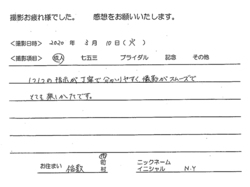 撮影お疲れ様でした。 感想をお願いいたします。
<撮影日時> 2020 年 3 月 10 日 (火)
<撮影項目> 成人 七五三 ブライダル 記念 その他
1つ1つの指示が丁寧で分かりやすく撮影がスムーズで
とても楽しかったです。
お住まい 町 村 ニックネーム イニシャル N.Y